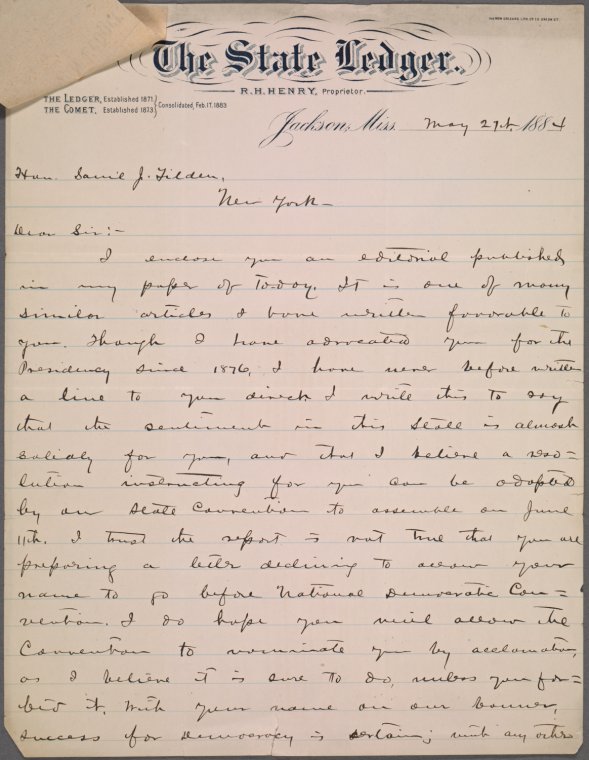 The State Ledger.
R.H. HENRY, Proprietor.
THE LEDGER, Established 1871.
THE COMET, Established 1873.
Consolidated, Feb. 17, 1883
Jackson, Miss. May 29th 1884
Hon. Samie J. Tilden,
New York —
Dear Sir:-
I enclose you an editorial published
in my paper of To-day. It is one of many
similar articles I have written favorable to
you. Though I have advocated you for the
Presidency since 1876, I have never before written
a line to you direct. I write this to say
that the sentiment in this State is almost
solidly for you, and that I believe a reso=
lution instructing for you can be adopted
by our State Convention to assemble on June
11th. I trust the report is not true that you are
preparing a letter declining to allow your
name to go before National Democratic Con=
vention. I do hope you will allow the
Convention to nominate you by acclamation,
as I believe it is sure to do, unless you for=
bid it. With your name on our banner,
success for Democracy is certain; with any other